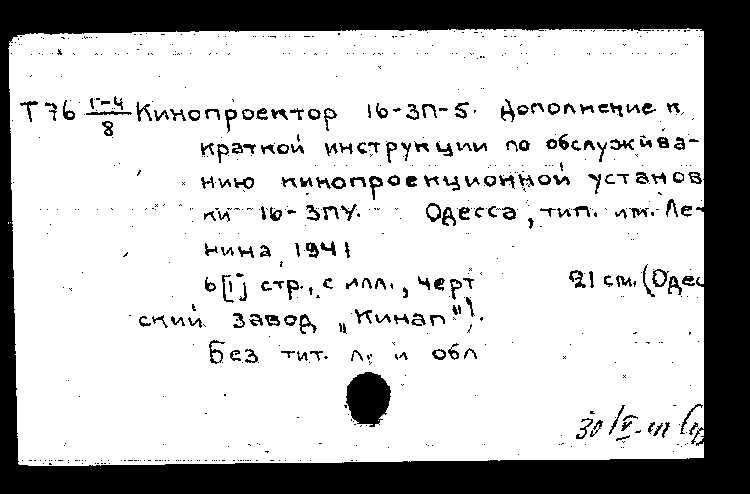 Т 76 Г-4/8 Кинопроектор 16-ЗП-5. Дополнение к
краткой инструкции по обслужива-
нию кинопроекционной установ
ки 16-ЗПУ. Одесса, тип. им. Ле-
нина, 1941
6[1] стр., с илл., черт 21 см. (Одес
ский завод „Кинап").
Без тит. л. и обл
30/V-41